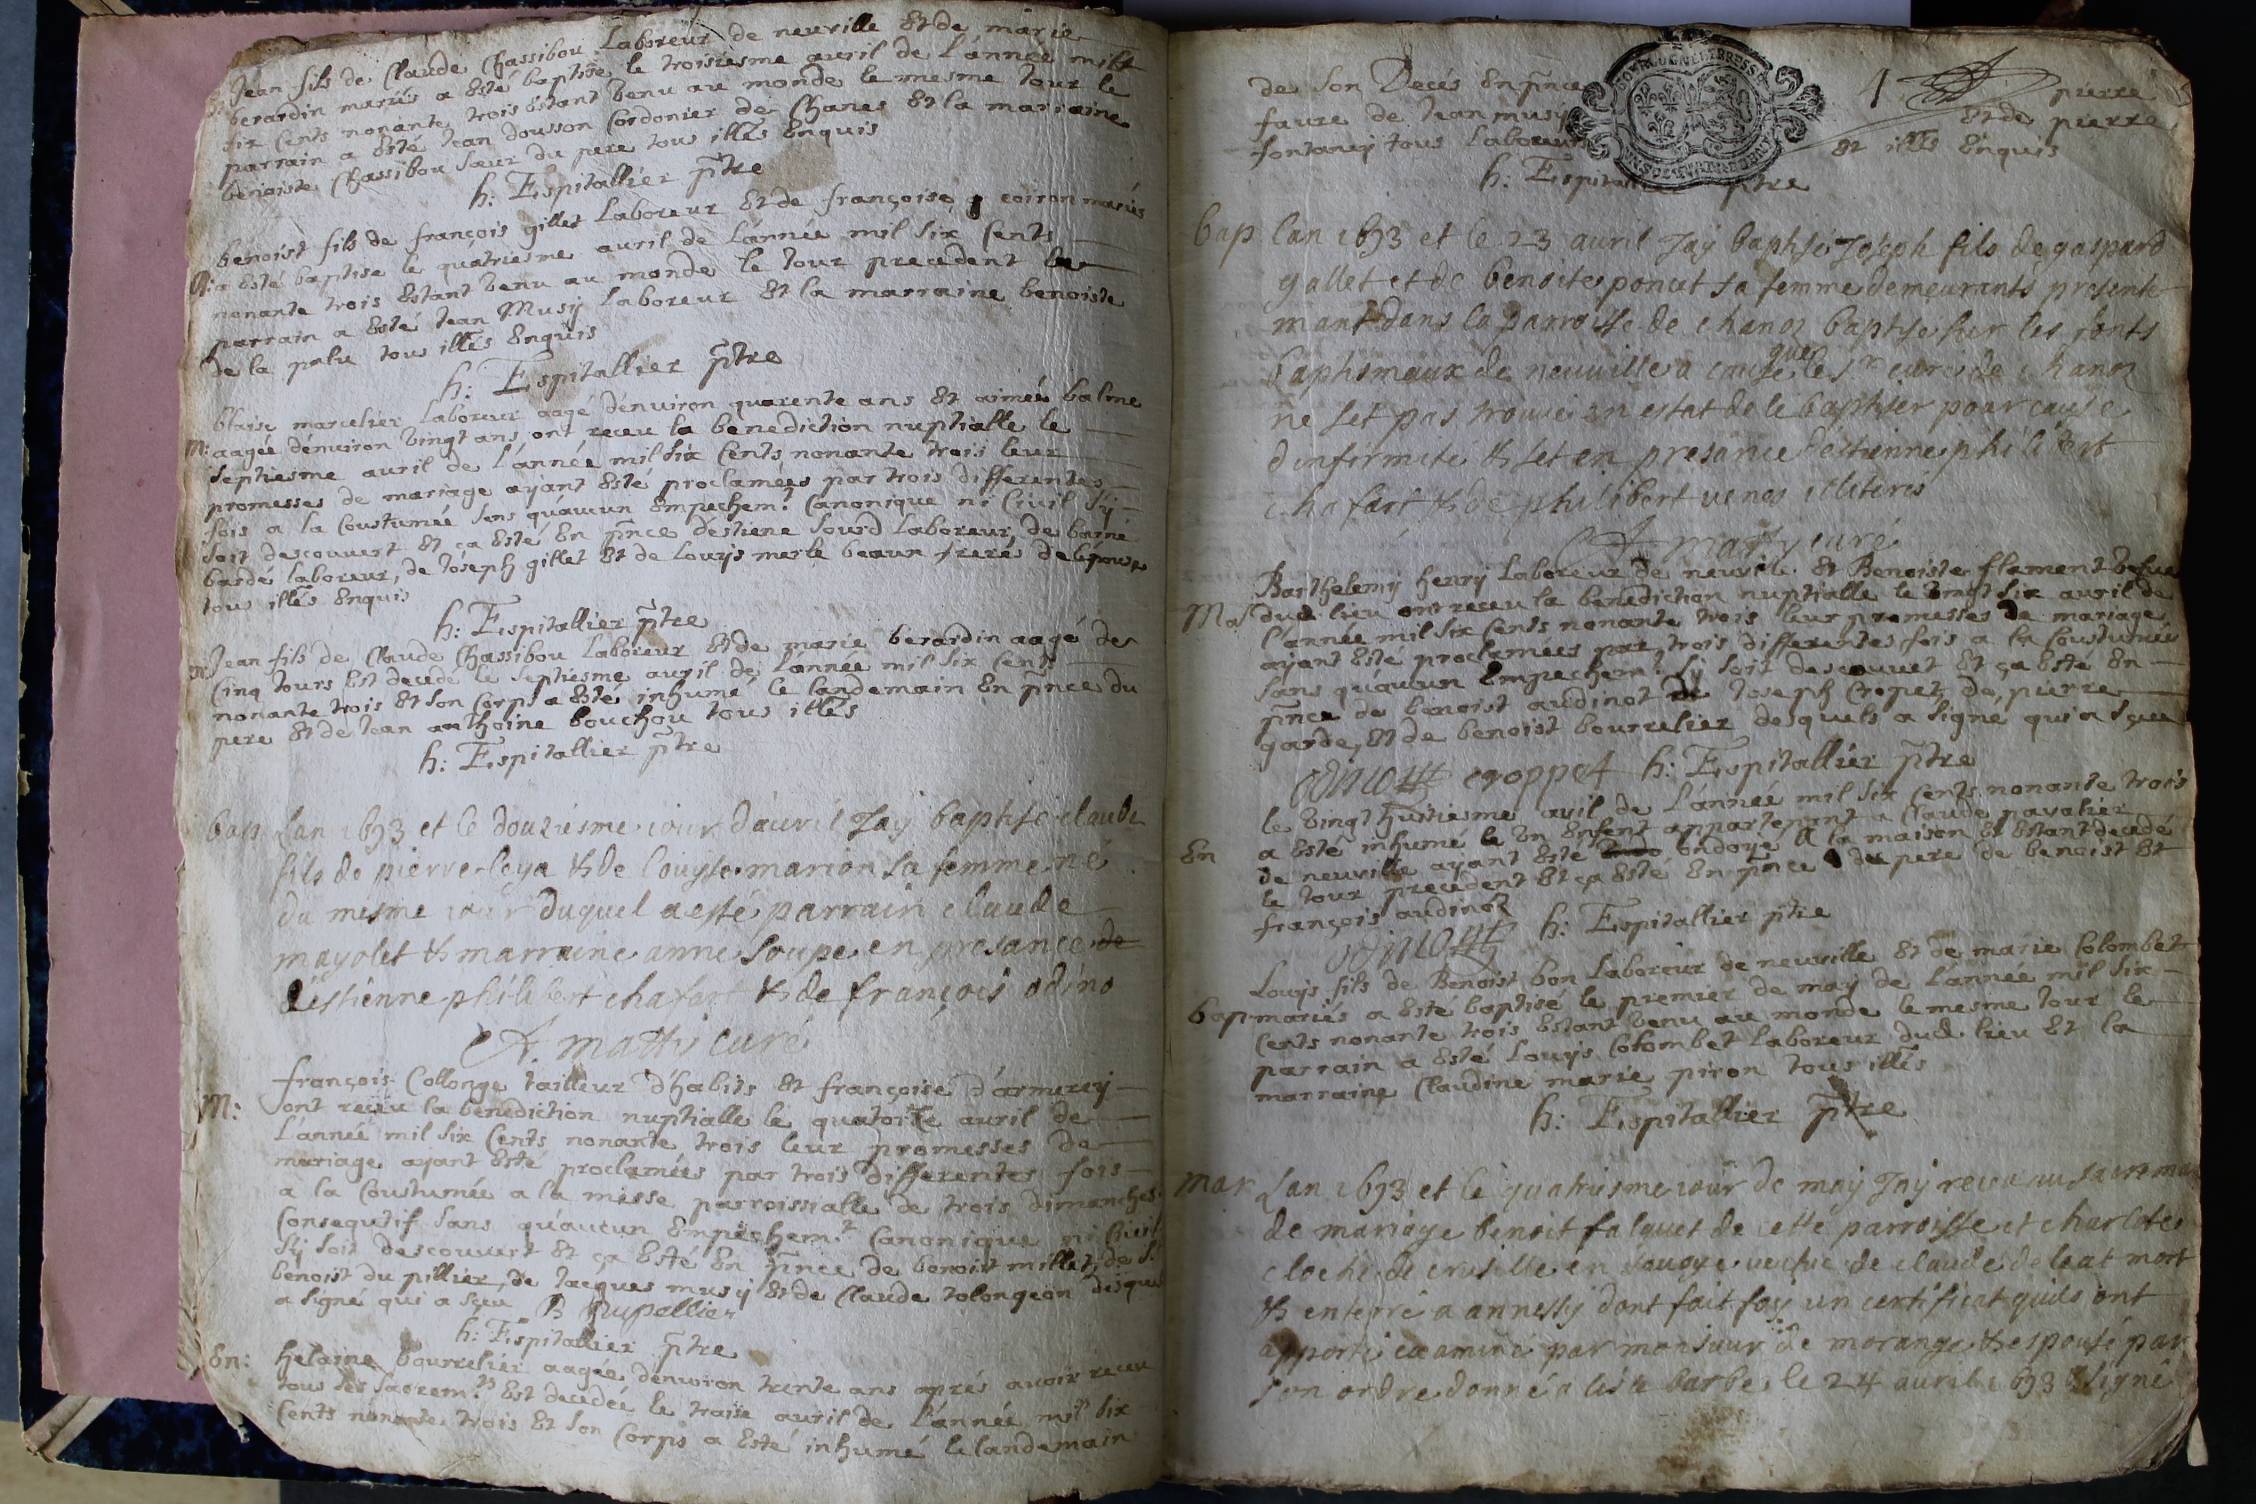 Jean fils de Claude Chassibou Laboreur de neuville Et de marie
berardin mariés a Esté baptise le troisiesme avril de L'année mill
six Cents nonante trois Estant venu au monde le mesme Jour le
parrain a Esté Jean dousson Cordonier de Chanes Et la marraine
benoiste Chassibou sœur du pere tous illés Enquis
h: Espitallier ptre
benoist fils de françois gillet Laboreur Et de françoise coiron mariés
a Esté baptise le quatriesme avril de L'année mil six Cents
nonante trois Estant venu au monde le Jour precedent le
parrain a Esté Jean Musy Laboreur Et la marraine benoiste
de la palu tous illés Enquis
h: Espitallier ptre
blaise marcelier Laboreur aagé d'environ quarente ans Et aimée balme
m: aagée d'environ vingt ans ont receu la benediction nuptialle le
septiesme avril de L'année mil six Cents nonante trois leur
promesses de mariage ayant Esté proclamées par trois differentes
fois a la Coustumée sens qu'aucun Empechem.t Canonique ni Civil s'y
soit descouvert Et ça Esté En pnce d'estiene sourd Laboreur, de barné
bardé laboreur, de Joseph gillet Et de Louys merle beaux freres de l'épouse
tous illés Enquis
h: Espitallier ptre
Jean fils de Claude Chassibou Laboreur Et de marie berardin aagé de
Cinq Jours Est decedé le septiesme avril de L'année mil six Cents
nonante trois Et son Corps a Esté inhumé le landemain En pnce du
pere Et de Jean anthoine bouchou tous illés
h: Espitallier ptre
bap Lan 1693 et le douziesme iour d'avril Jay baptisé claude
fils de pierre leya & de louyse marion sa femme né
du mesme iour duquel a esté parrain claude
mayolet & marraine anne soupe en presance de
d'estienne philibert chafart & de françois odino
A. mathy curé
françois Collonge tailleur d'habits Et françoise d'armerey
M: ont receu la benediction nuptialle le quatorze avril de
L'année mil six Cents nonante trois leur promesses de
mariage ayant Esté proclamées par trois differentes fois
a la Coustumée a la messe parroissialle de trois dimanches
Consequtif sans qu'aucun Empechem.t Canonique ni Civil
s'y soit descouvert Et ça Esté En pnce de benoist millet, de S.r
benoist du pillier, de Jacques musy Et de Claude tolongeon desquel
a signé qui a sçeu B Dupellier
h: Espitallier ptre
En: helaine bourrelier aagée d'environ trente ans après avoir receu
tous les sacrem.ts Est decedée le traise avril de L'année mil six
Cents nonante trois Et son Corps a Esté inhumé le landemain
de son Decés En pnce pierre
faure de Jean musy Et de pierre
fontaney tous Laboreurs Et illés Enquis
h: Espitallier ptre
bap Lan 1693 et le 23 avril Jay baptisé Joseph fils de gaspard
gallet et de benoite poncet sa femme demeurants presente
mant dans la parroisse de chanoz baptisé sur les fonts
baptismaux de neuville a cause que le S.r curé de chanoz
ne set pas trouvé en estat de le baptiser pour cause
d'infirmité & set en presance d'estienne philibert
chafart & de philibert venos illiterés
A. mathy curé
Barthelemy henry Laboreur de neuville Et Benoiste flament vefve
Mar dud. lieu ont receu la benediction nuptialle le vingt six avril de
l'année mil six Cents nonante trois leur promesses de mariage
ayant Esté proclamées par trois differentes fois a la Coustumée
sans qu'aucun Empechem.t s'y soit descouvert Et ça Esté En
pnce de benoist audinot de Joseph Cropet, de pierre
garde, Et de benoist bourrelier desquels a signé qui a sçeu
croppet h: Espitallier ptre
le vingt huitiesme avril de L'année mil six Cents nonante trois
a Esté inhumé le un Enfent appartenant a Claude pavalier
En de neuville ayant Esté ondoye A la maison Et Estant decedé
le Jour precedent Et ça Esté En pnce du pere de benoist Et
françois audinot
h: Espitallier ptre
Louys fils de Benoist bon Laboreur de neuville Et de marie Colombet
bap mariés a Esté baptisé le premier de may de L'année mil six
Cents nonante trois Estant venu au monde le mesme Jour le
parrain a Esté Louys Colombet Laboreur dud. lieu Et la
marraine Claudine marie piron tous illés
h: Espitallier ptre
mar Lan 1693 et le quatriesme iour de may Jay receu au sacreman
de mariage benoit falquet de cette parroisse et charlote
cloche de crusille en savoye vefve de claude deleat mort
& enterré a annessy dont fait foy un certificat quils ont
apporté examiné par monsieur de morange & espousé par
son ordre donné a liste barbe le 24 avril 1693 & signé